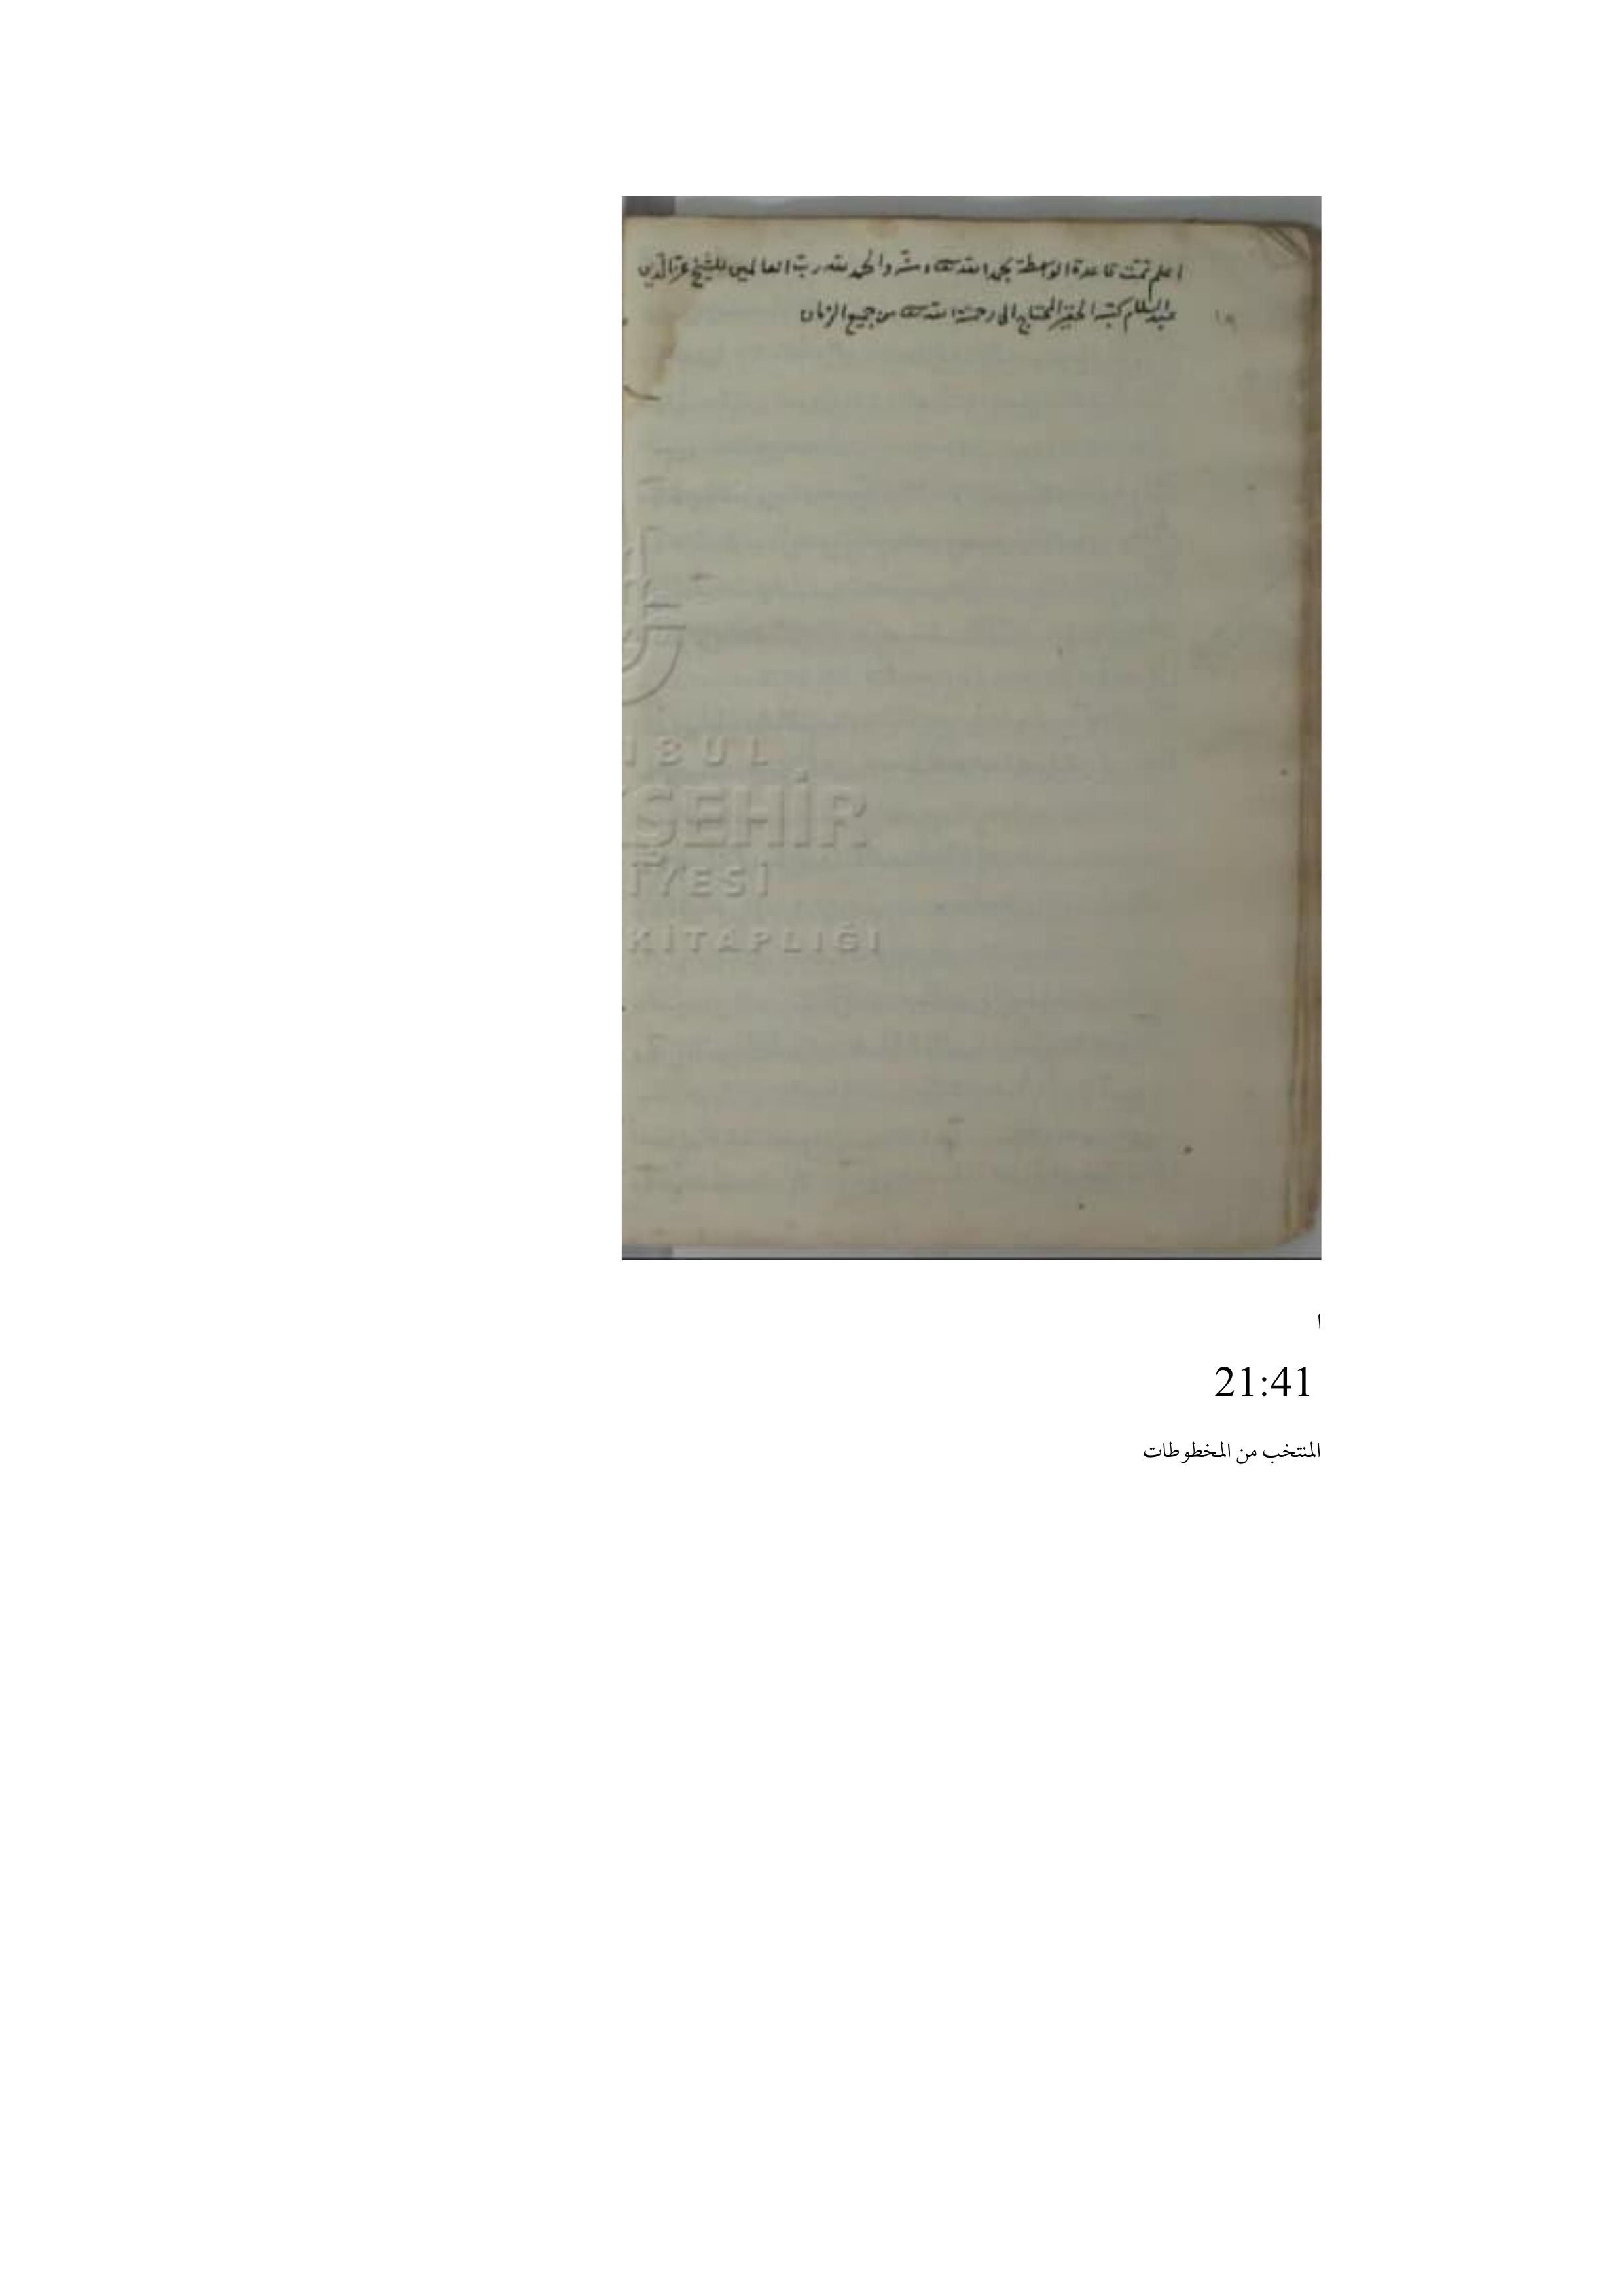 اعلم تمت قاعدة الوسطة بحمد الله تعالى و والحمد لله رب العالمين للشيخ عز الدين
عبد السلام كتبه الحقير المحتاج الى رحمة الله تعالى من جميع الزمان
IBUL
KŞEHİR
İYESİ
KİTAPLIĞI
ا
21:41
المنتخب من المخطوطات